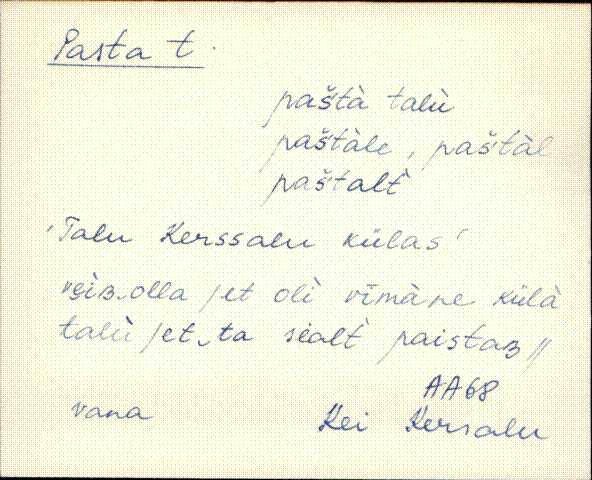 Pasta t.
paštà talù
paštàle, paštàl
paštalt̀
'Talu Kerssalu külas'
veiʙ‿olla / et oli vīmàne külà
talù / et‿ta sialt̀ paistaʙ //
AA68
vana Kei Kersalu